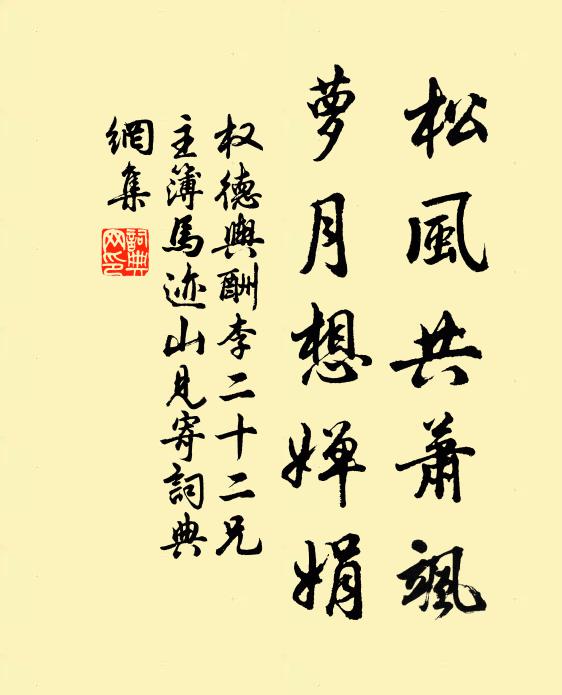 松風共蕭颯
萝月想婵娟
权德輿酬李二十二兄
主簿馬迹山見寄詞典
網集
詞典
网印